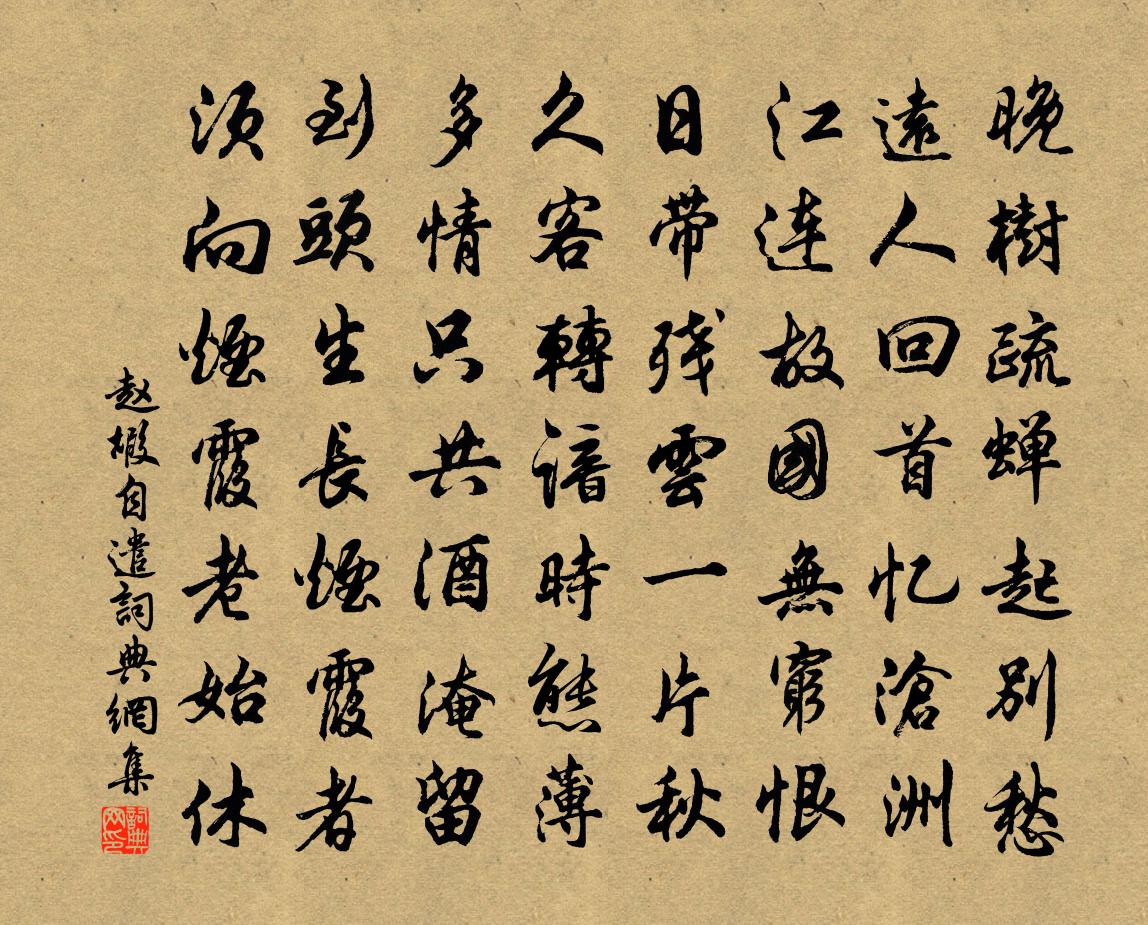 晚樹疏蟬起別愁
遠人回首忆滄洲
江連故國無窮恨
日帶殘雲一片秋
久客轉諳時態薄
多情只共酒淹留
到頭生長煙霞者
須向煙霞老始休
赵嘏自遣詞典網集
詞典网印